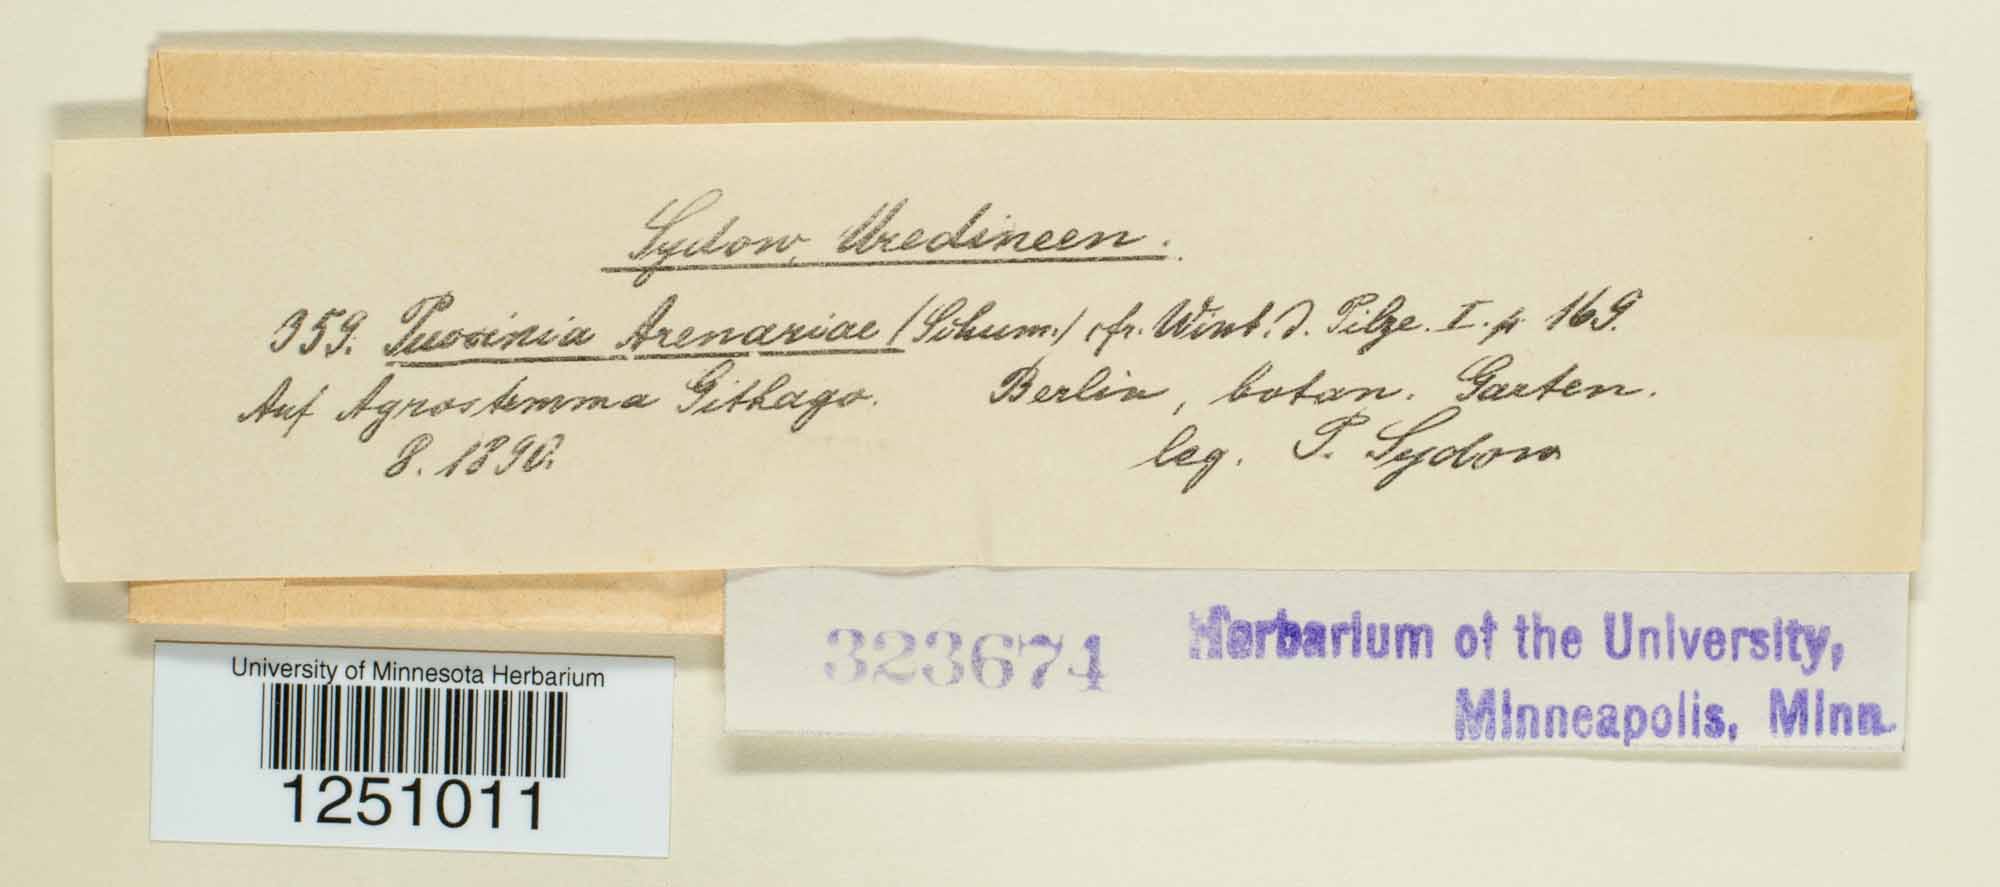 Sydow, Uredineen.
359. Puccinia Arenariae (Schum.) cfr. Wint. d. Pilze. I. p 169.
Auf Agrostemma Githago. Berlin, botan. Garten.
8. 1890. leg. P. Sydow
323674 Herbarium of the University,
Minneapolis, Minn.
University of Minnesota Herbarium
1251011